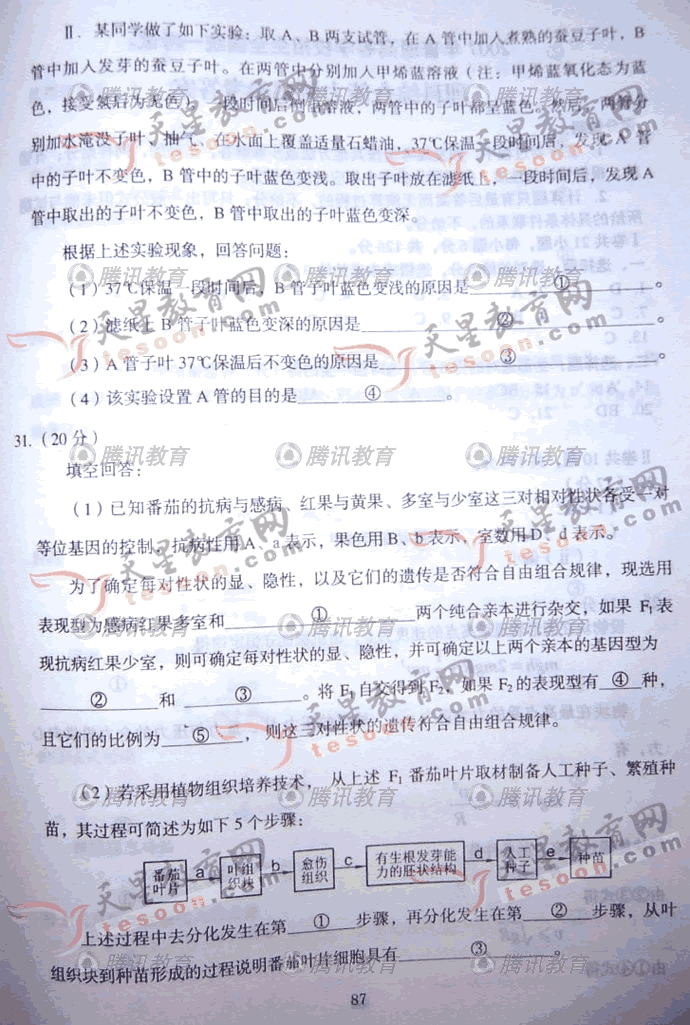 Ⅱ．某同学做了如下实验：取 A、B 两支试管，在 A 管中加入煮熟的蚕豆子叶，B
管中加入发芽的蚕豆子叶。在两管中分别加入甲烯蓝溶液（注：甲烯蓝氧化态为蓝
色，接受氢后为无色）。一段时间后倒出溶液，两管中的子叶都呈蓝色。然后，两管分
别加水淹没子叶、抽气、在水面上覆盖适量石蜡油，37℃保温一段时间后，发现 A 管
中的子叶不变色，B 管中的子叶蓝色变浅。取出子叶放在滤纸上，一段时间后，发现 A
管中取出的子叶不变色，B 管中取出的子叶蓝色变深。
根据上述实验现象，回答问题：
（1）37℃保温一段时间后，B 管子叶蓝色变浅的原因是 ① 。
（2）滤纸上 B 管子叶蓝色变深的原因是 ② 。
（3）A 管子叶 37℃保温后不变色的原因是 ③ 。
（4）该实验设置 A 管的目的是 ④ 。
31.（20 分）
填空回答：
（1）已知番茄的抗病与感病、红果与黄果、多室与少室这三对相对性状各受一对
等位基因的控制，抗病性用 A、a 表示，果色用 B、b 表示，室数用 D、d 表示。
为了确定每对性状的显、隐性，以及它们的遗传是否符合自由组合规律，现选用
表现型为感病红果多室和 ① 两个纯合亲本进行杂交，如果 F₁ 表
现抗病红果少室，则可确定每对性状的显、隐性，并可确定以上两个亲本的基因型为
② 和 ③ 。将 F₁ 自交得到 F₂，如果 F₂ 的表现型有 ④ 种，
且它们的比例为 ⑤ ， 则这三对性状的遗传符合自由组合规律。
（2）若采用植物组织培养技术， 从上述 F₁ 番茄叶片取材制备人工种子、繁殖种
苗，其过程可简述为如下 5 个步骤：
番茄叶片 a 叶组织块 b 愈伤组织 c 有生根发芽能力的胚状结构 d 人工种子 e 种苗
上述过程中去分化发生在第 ① 步骤，再分化发生在第 ② 步骤，从叶
组织块到种苗形成的过程说明番茄叶片细胞具有 ③ 。
87
天星教育网
tesoon.com
腾讯教育